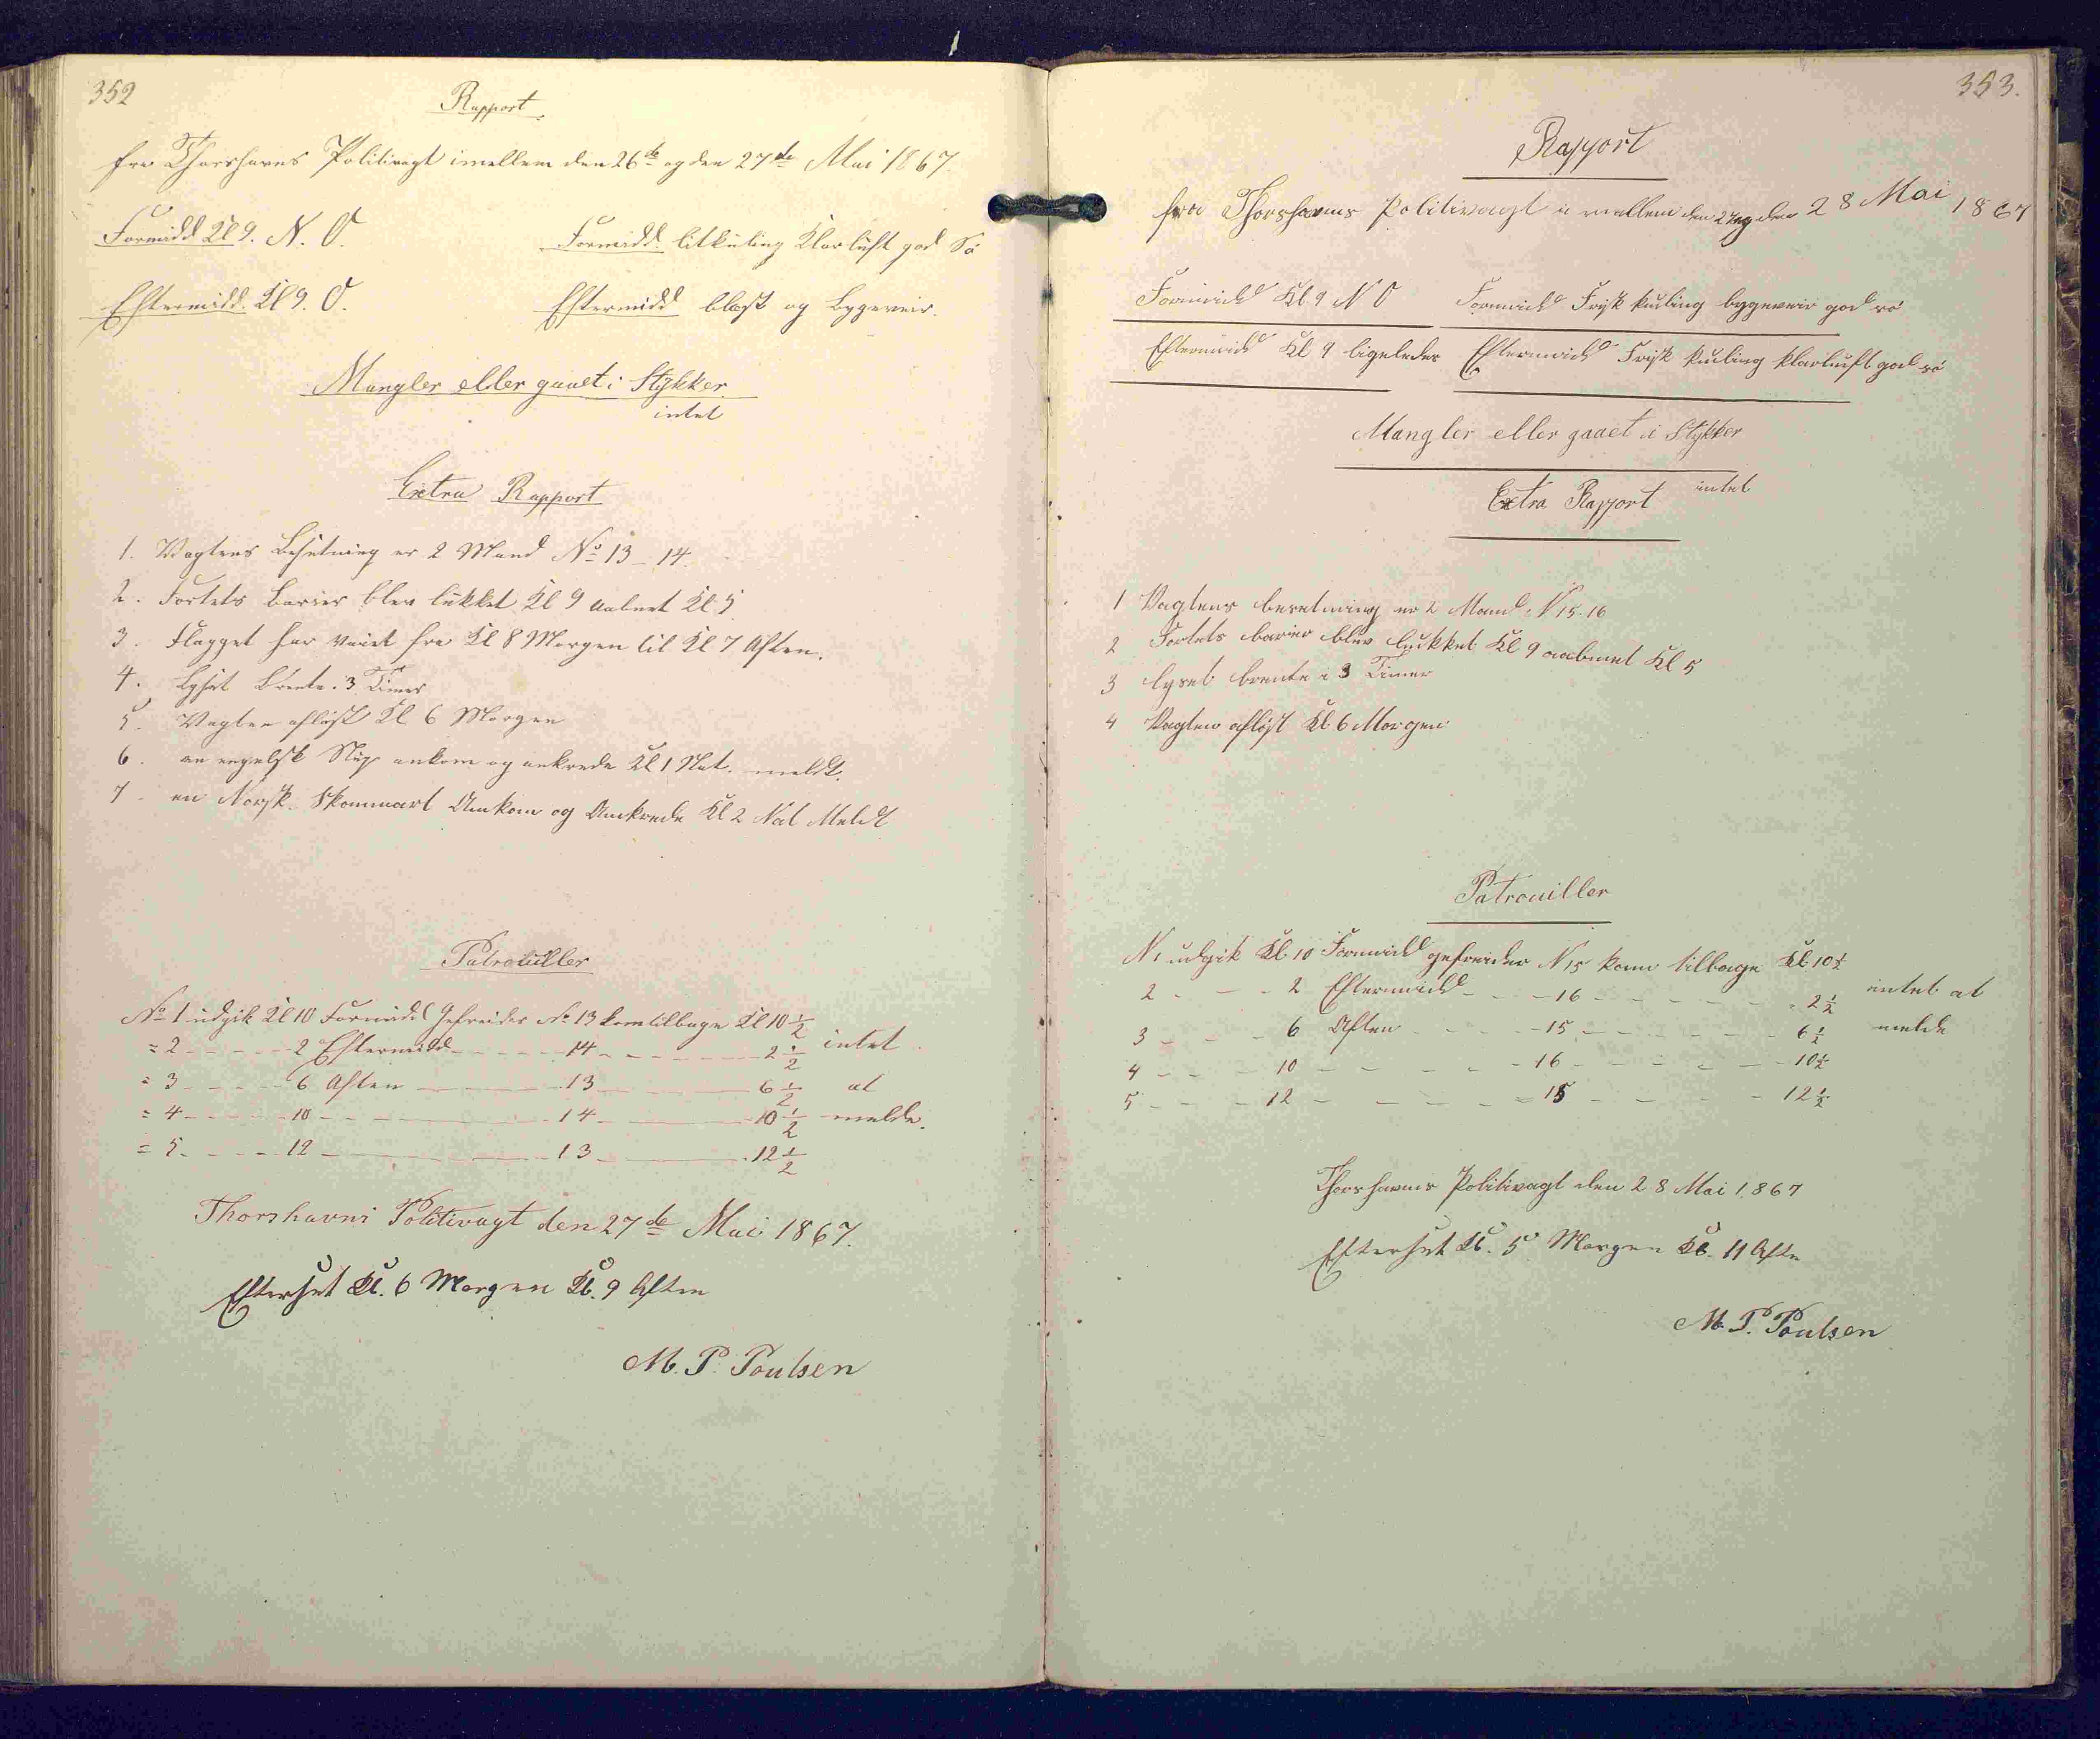 352
Rapport
fra Thorshavns Politivagt imellem den 26de og den 27de Mai 1867.
Formidd Kl 9. N. O. Formidd. litkuling Klarluft god Sö
Eftermidd. Kl 9. O. Eftermidd blæst og Bygeveir.
Mangler eller gaaet i Stykker.
intet
Extra Rapport
1. Vagtens Besetning er 2 Mand No 13 - 14.
2. Fortets Barier blev lukket Kl 9 aabnet Kl. 5
3. Flagget har vaiet fra Kl 8 Morgen til Kl 7 Aften.
4. Lyset brente i 3 Timer
5. Vagten aflöst Kl 6 Morgen
6. en engelsk Slup ankom og ankrede Kl 1 Nat. meldt.
7 en Norsk Skonnart Ankom og Ankrede Kl 2 Nat Meldt
Patrouiller
No 1 udgik Kl 10 Formidd Gefreider No 13 kom tilbage Kl 10 1/2
= 2 - - - - 2 Eftermidd - - - - 14 - - - - 2 1/2 intet
= 3 - - - - 6 Aften - - - - 13 - - - - 6 1/2 at
= 4 - - - - 10 - - - - 14 - - - - 10 1/2 melde.
= 5 - - - - 12 - - - - 13 - - - - 12 1/2
Thorshavns Politivagt den 27de Mai 1867.
Efterset Kl. 6 Morgen Kl. 9 Aften
M. P. Poulsen
353.
Rapport
fra Thorshavns Politivagt i mellem den 27 og den 28 Mai 1867
Formidd Kl 9 N O Formidd Frisk kuling bygeveir god sö
Eftermidd Kl 9 ligeledes Eftermidd Frisk kuling klarluft god sö
Mangler eller gaaet i Stykker
intet
Extra Rapport
1 Vagtens besetning er 2 Mand N 15-16
2 Fortets barier blev lukket Kl 9 aabnet Kl 5
3 lyset brente i 3 Timer
4 Vagten aflöst Kl. 6 Morgen
Patrouiller
N 1 udgik Kl 10 Formidd gefreider N 15 kom tilbage Kl 10 1/2
2 - - - 2 Eftermidd - - - 16 - - - - 2 1/2 intet at
3 - - - 6 Aften - - - - 15 - - - - 6 1/2 melde
4 - - - 10 - - - - 16 - - - - 10 1/2
5 - - - 12 - - - - 15 - - - - 12 1/2
Thorshavns Politivagt den 28 Mai 1867
Efterset Kl. 5 Morgen Kl. 11 Afte
M. P. Poulsen